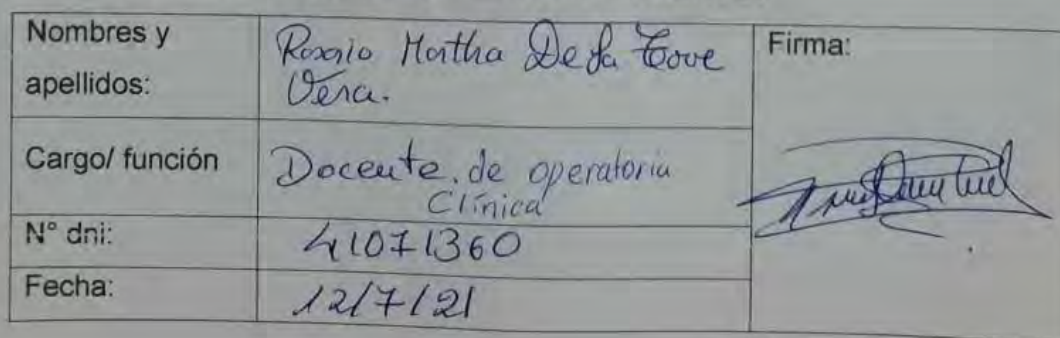 Nombres y apellidos:
Rosario Martha De la Torre
Vera.
Firma:
Cargo/ función
Docente de operatoria
Clínica
N° dni:
41071360
Fecha:
12/7/21